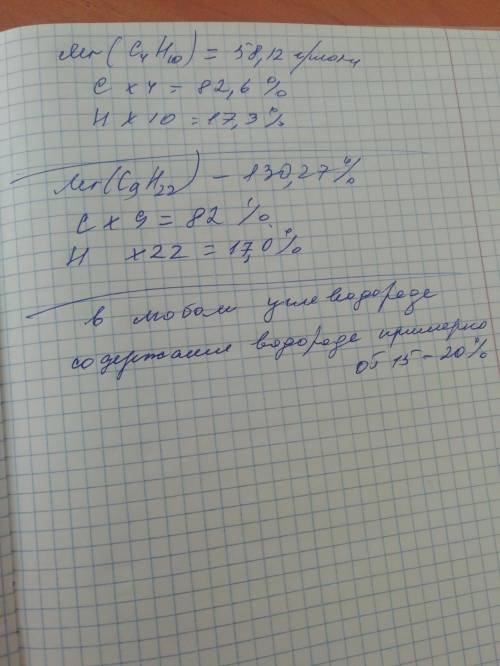 Mr(C₄H₁₀) = 58,12 г/моль
C x 4 = 82,6 %
H x 10 = 17,3 %
Mr(C₉H₂₂) - 130,27 %
C x 9 = 82 %
H x 22 = 17,0 %
в любом углеводороде
содержание водорода примерно
от 15 - 20 %